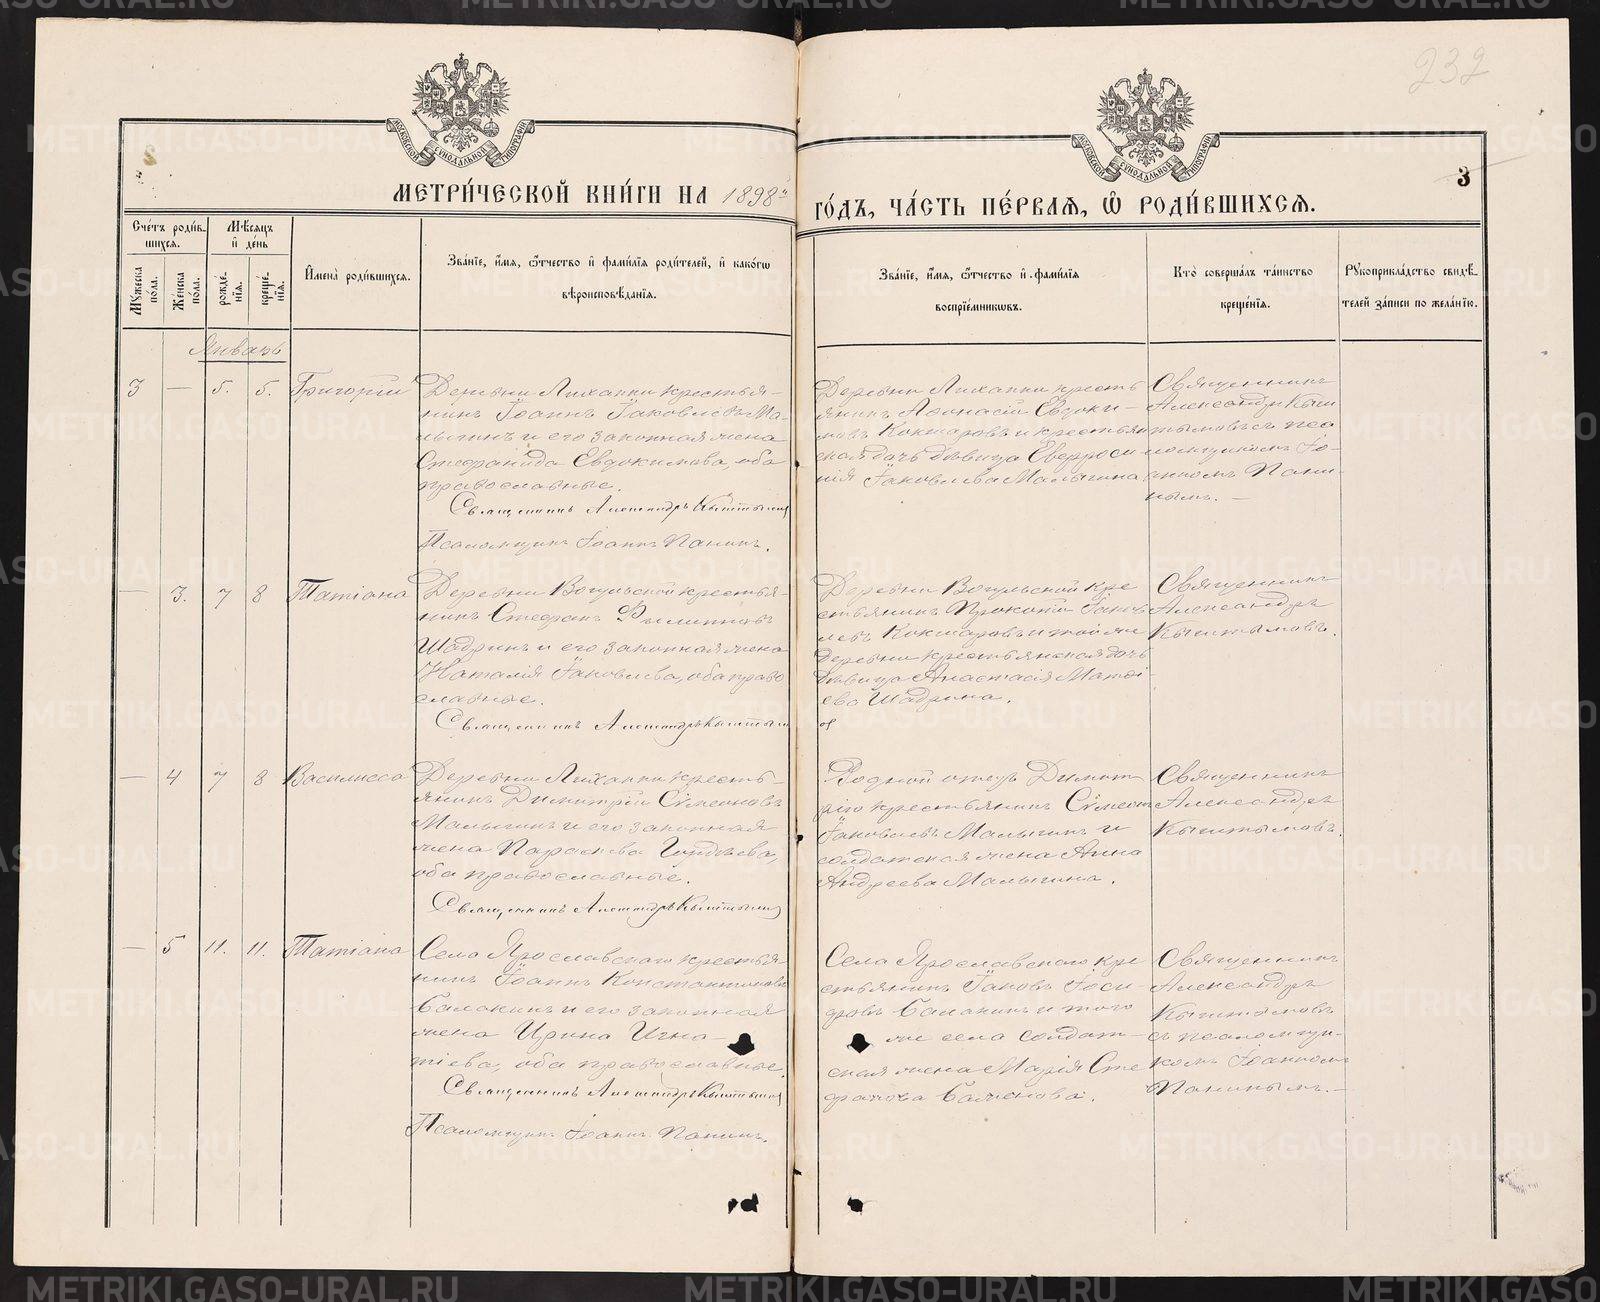 232
3
МОСКОВСКОЙ СУНОДАЛЬНОЙ ТИПОГРАФІИ
МОСКОВСКОЙ СУНОДАЛЬНОЙ ТИПОГРАФІИ
МЕТРИ́ЧЕСКОЙ КНИ́ГИ НА 1898й
ГО́ДЪ, ЧА́СТЬ ПЕ́РВАЯ, Ѽ РОДИ́ВШИХСЯ.
Сче́тъ роди́в-
шихся.
Мꙋ́жеска по́ла.
Же́нска по́ла.
Мѣ́сяцъ
и҆ де́нь
рожде́-
нїя.
креще́-
нїя.
И҆мена̀ роди́вшихся.
Зва́нїе, и҆́мя, ѻ҆́тчество и҆ фами́лїя роди́телей, и҆ како́гѡ
вѣроисповѣ́данїя.
Зва́нїе, и҆́мя, ѻ҆́тчество и҆ фами́лїя
воспрїе́мникѡвъ.
Кто̀ соверша́лъ та́инство
креще́нїя.
Рꙋкоприкла́дство свидѣ́-
телей за́писи по жела́нїю.
Январь
3
—
5.
5.
Григорій
Деревни Лихачки крестья-
нинъ Іоаннъ Іаковлевъ Ма-
лыгинъ и его законная жена
Стефанида Евдокимова, оба
православные.
Священникъ Александръ Кыштымовъ
Псаломщикъ Іоаннъ Панинъ.
Деревни Лихачки кресть
янинъ Аѳонасій Евдоки-
мовъ Кокшаровъ и крестьян
ская дочь дѣвица Еверроси
нія Іаковлева Малыгина
Священникъ
Александръ Кыш
тымовъ съ пса
ломщикомъ Іо-
анномъ Пани-
нымъ.—
—
3.
7
8
Татіана
Деревни Вогульской крестья-
нинъ Стефанъ Филипповъ
Шадринъ и его законная жена
Наталія Іаковлева, оба право
славные.
Священникъ Александръ Кыштым
Деревни Вогульской кре
стьянинъ Прокопій Іаков
левъ Кокшаровъ и той же
деревни крестьянская дочь
дѣвица Анастасія Матѳі-
ева Шадрина.
Священникъ
Александръ
Кыштымовъ.
—
4
7
8
Василисса
Деревни Лихачки кресть-
янинъ Димитрій Сѵмеоновъ
Малыгинъ и его законная
жена Параскева Гордѣева,
оба православные.
Священникъ Александръ Кыштымов
Родной отецъ Димит
рію крестьянинъ Сѵмеон
Іаковлевъ Малыгинъ и
солдатская жена Анна
Андреева Малыгина.
Священникъ
Александръ
Кыштымовъ.
—
5
11.
11.
Татіана
Села Ярославскаго крестья
нинъ Іоаннъ Константиновъ
Балакинъ и его законная
жена Ирина Игна-
тіева, оба православные.
Священникъ Александръ Кыштымов
Псаломщикъ Іоаннъ Панинъ.
Села Ярославскаго кре
стьянинъ Іаковъ Іоси-
фовъ Балакинъ и того
же села солдат-
ская жена Марія Сте
фанова
Священникъ
Александръ
Кыштымовъ
съ псаломщи-
комъ Іоанномъ
Панинымъ.—
METRIKI.GASO-URAL.RU